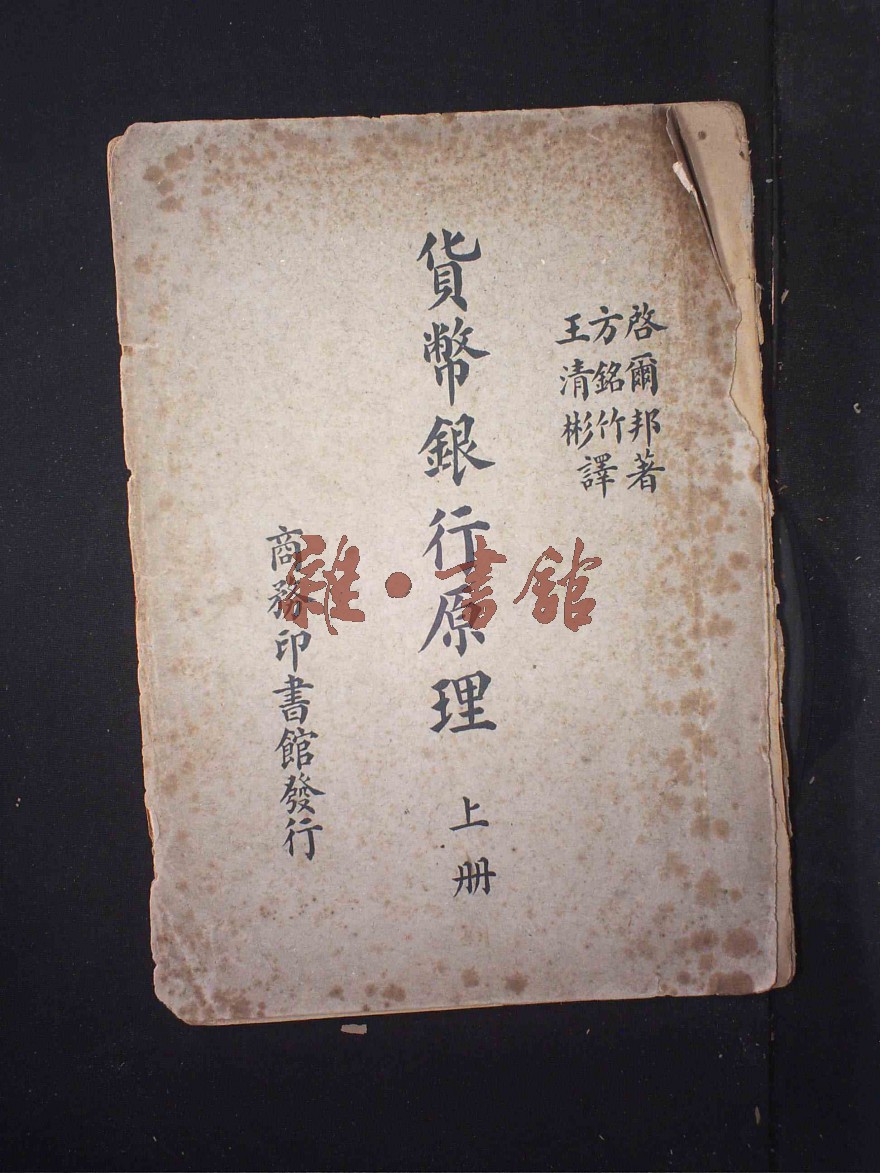 啓爾邦著
方銘竹
王清彬
譯
貨幣銀行原理 上册
商務印書館發行
雜·書館